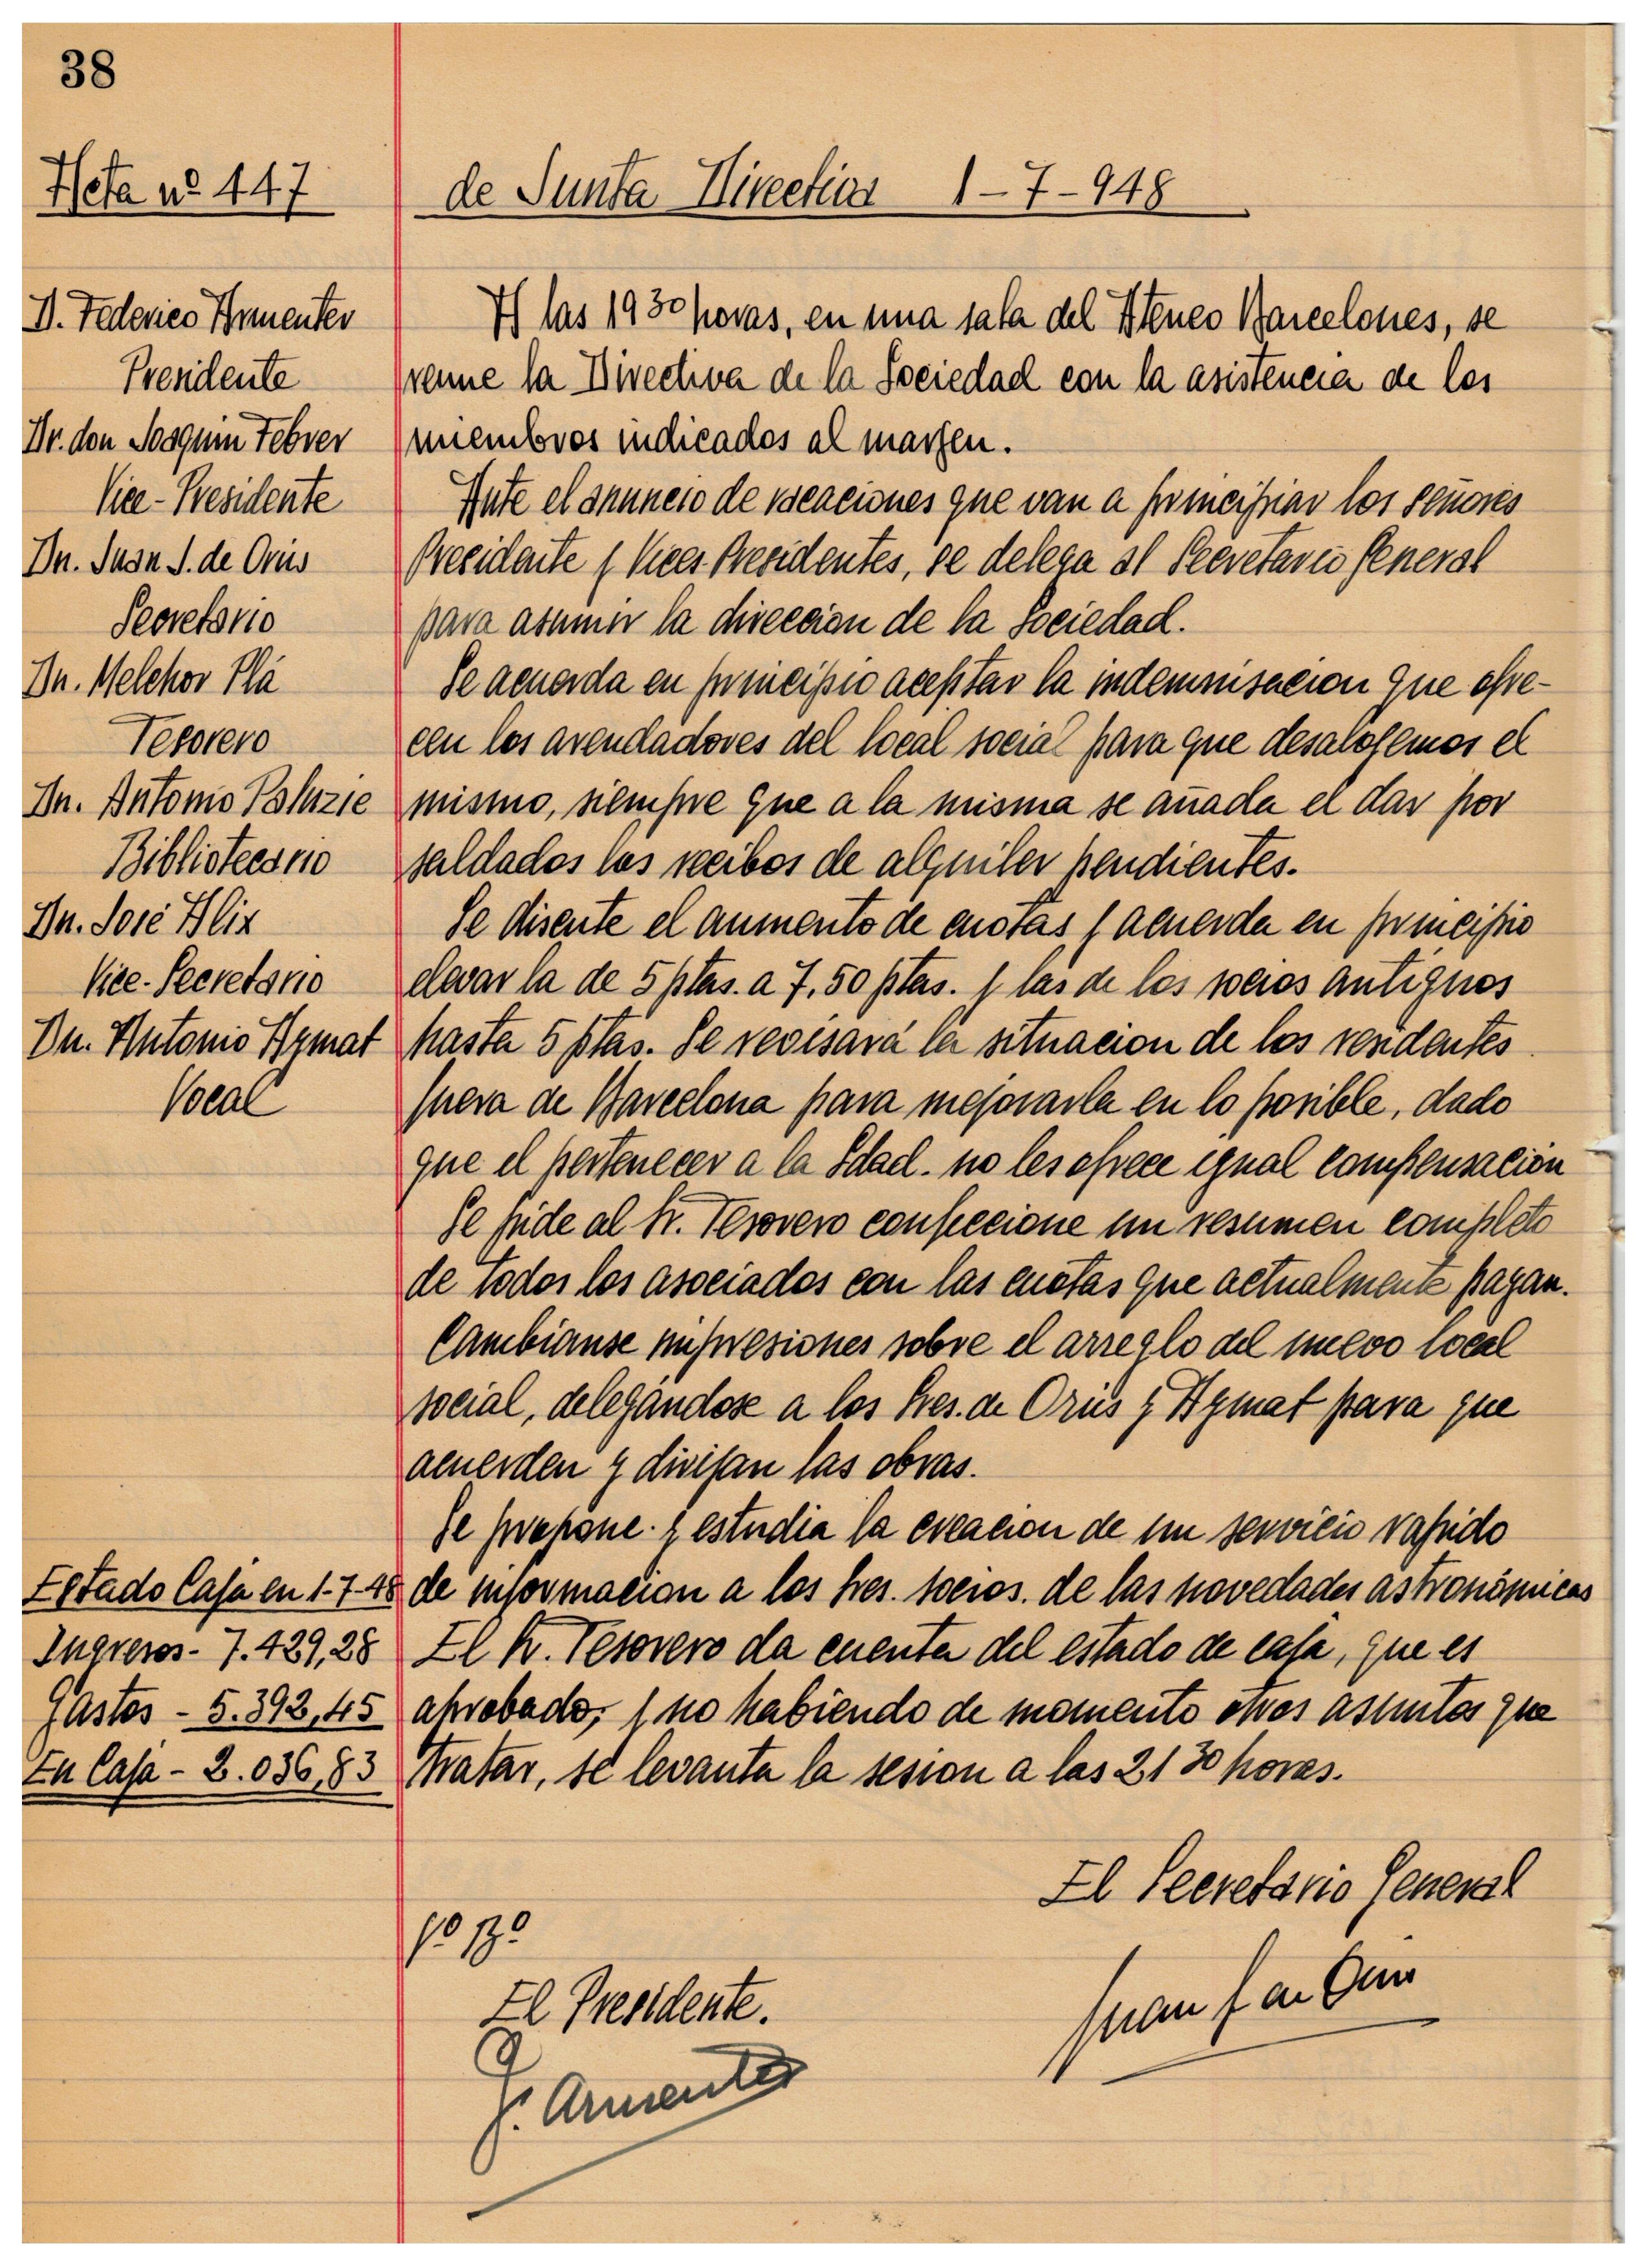 38
Acta nº 447
de Junta Directiva 1-7-948
D. Federico Armenter
Presidente
Dr. don Joaquin Febrer
Vice-Presidente
Dn. Juan J. de Orús
Secretario
Dn. Melchor Plá
Tesorero
Dn. Antonio Paluzie
Bibliotecario
Dn. José Alix
Vice-Secretario
Dn. Antonio Aymat
Vocal
A las 19 30 horas, en una sala del Ateneo Barcelones, se
reune la Directiva de la Sociedad con la asistencia de los
miembros indicados al margen.
Ante el anuncio de vacaciones que van a principiar los señores
Presidente y Vices-Presidentes, se delega al Secretario General
para asumir la direccion de la Sociedad.
Se acuerda en principio aceptar la indemnisacion que ofre-
cen los arendadores del local social para que desalojemos el
mismo, siempre que a la misma se añada el dar por
saldados los recibos de alquiler pendientes.
Se discute el aumento de cuotas y acuerda en principio
elevar la de 5 ptas. a 7,50 ptas. y las de los socios antiguos
hasta 5 ptas. Se revisará la situacion de los residentes
fuera de Barcelona para mejorarla en lo posible, dado
que el pertenecer a la Sdad. no les ofrece igual compensación
Se pide al Sr. Tesorero confeccione un resumen completo
de todos los asociados con las cuotas que actualmente pagan.
Cambianse impresiones sobre el arreglo del nuevo local
social, delegándose a los Sres. de Orús y Aymat para que
acuerden y dirijan las obras.
Se propone y estudia la creacion de un servicio rapido
de informacion a los Sres. socios. de las novedades astronómicas
El Sr. Tesorero da cuenta del estado de caja, que es
aprobado; y no habiendo de momento otros asuntos que
tratar, se levanta la sesion a las 21 30 horas.
Estado Caja en 1-7-48
Ingresos - 7.429,28
Gastos - 5.392,45
En Caja - 2.036,83
El Secretario General
Vº Bº
El Presidente.
F. Armenter